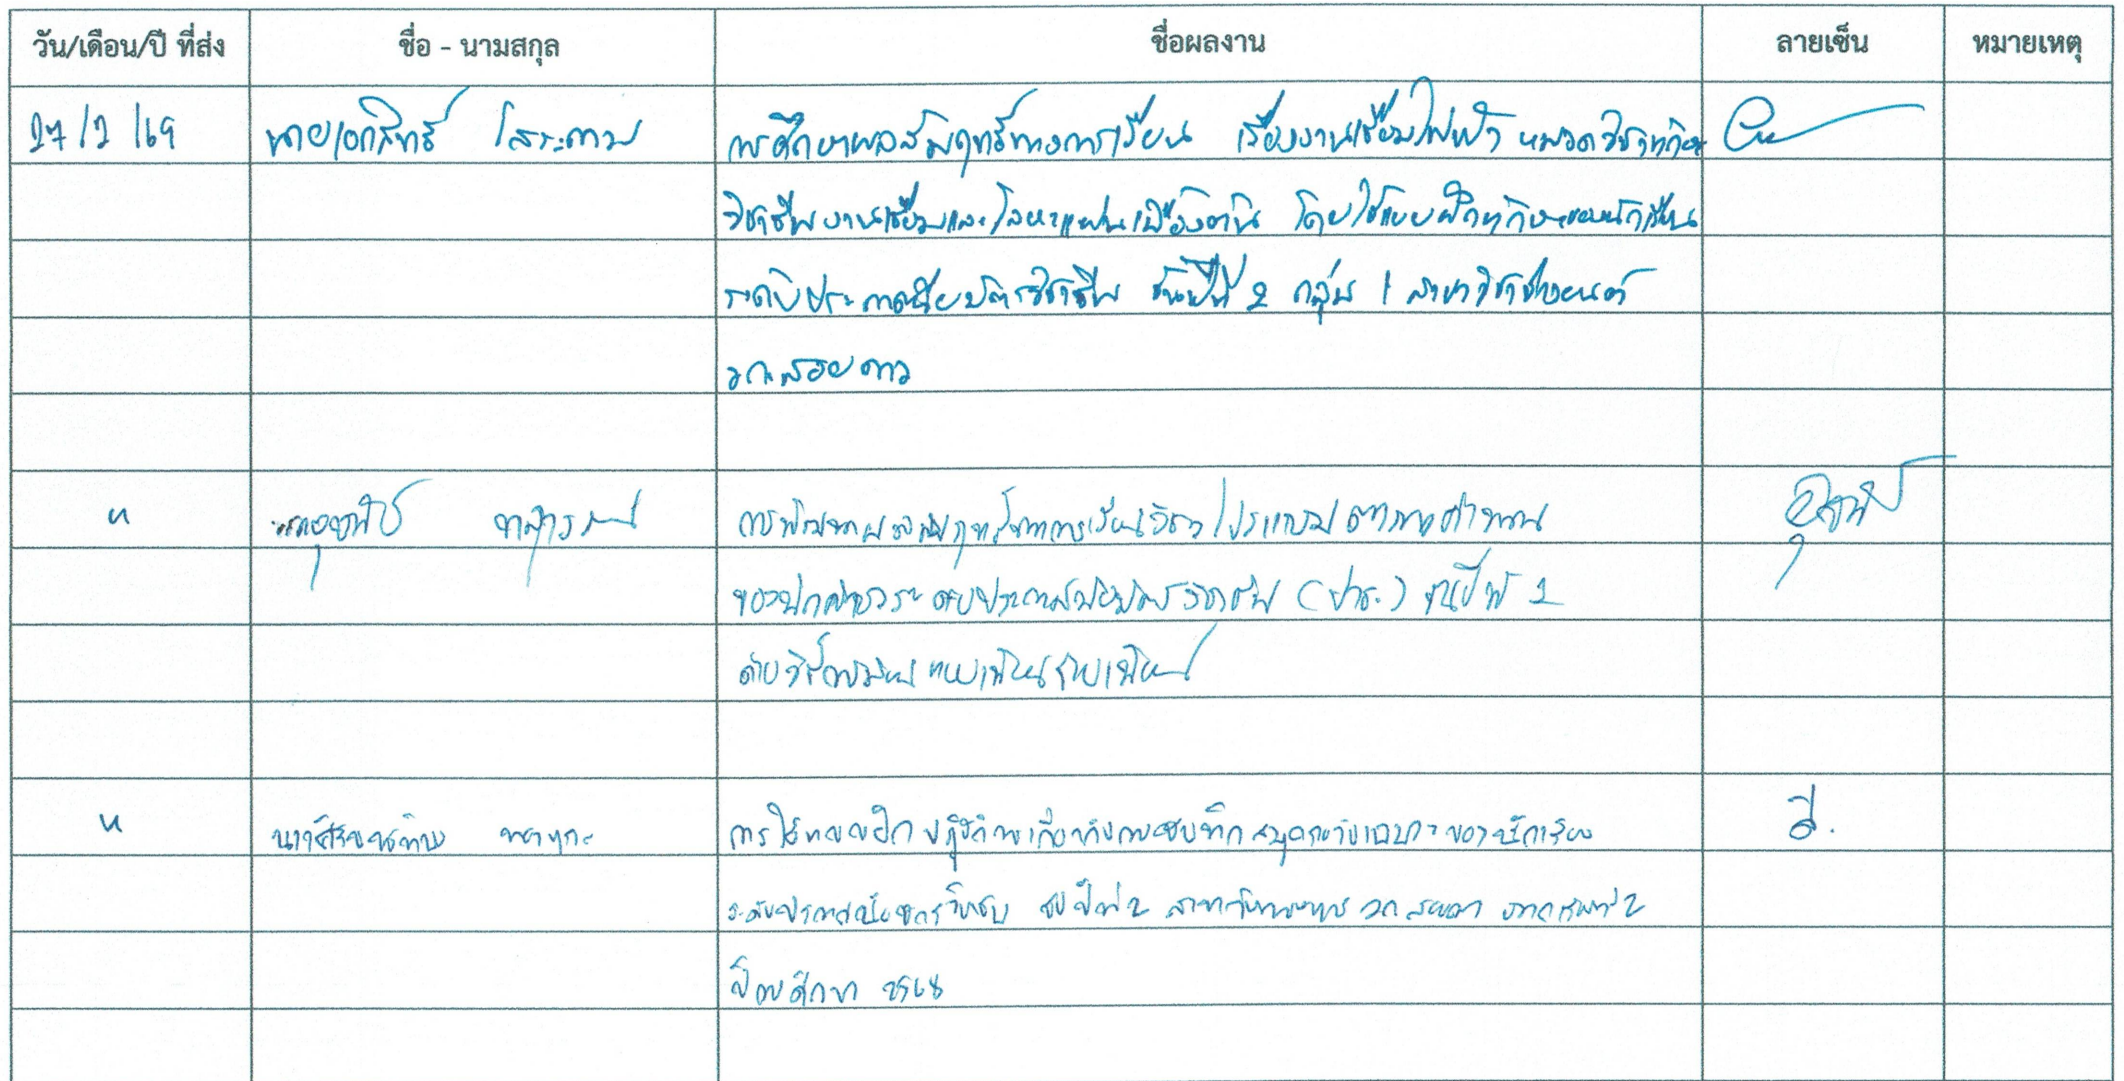 วัน/เดือน/ปี ที่ส่ง ชื่อ - นามสกุล ชื่อผลงาน ลายเซ็น หมายเหตุ
27/2/69 นายเอกสิทธิ์ การศึกษาผลสัมฤทธิ์ทางการเรียน เรื่องงานเชื่อมไฟฟ้า หมวดวิชาทักษะ
วิชาชีพ งานเชื่อมและโลหะแผ่นเบื้องต้น โดยใช้แบบฝึกทักษะของนักเรียน
ระดับประกาศนียบัตรวิชาชีพ ชั้นปีที่ 2 กลุ่ม 1 สาขาวิชาช่างยนต์
วก.สอยดาว
" การพัฒนาผลสัมฤทธิ์ทางการเรียนวิชาโปรแกรมตารางคำนวณ
ของนักเรียนระดับประกาศนียบัตรวิชาชีพ (ปวช.) ชั้นปีที่ 1
ด้วยวิธีการสอนแบบเพื่อนช่วยเพื่อน
" การใช้แบบฝึกปฏิบัติการเกี่ยวกับการบันทึกสมุดรายวันเฉพาะของนักเรียน
ระดับประกาศนียบัตรวิชาชีพ ชั้นปีที่ 2 ภาคเรียนที่ 2
ปีการศึกษา 2568